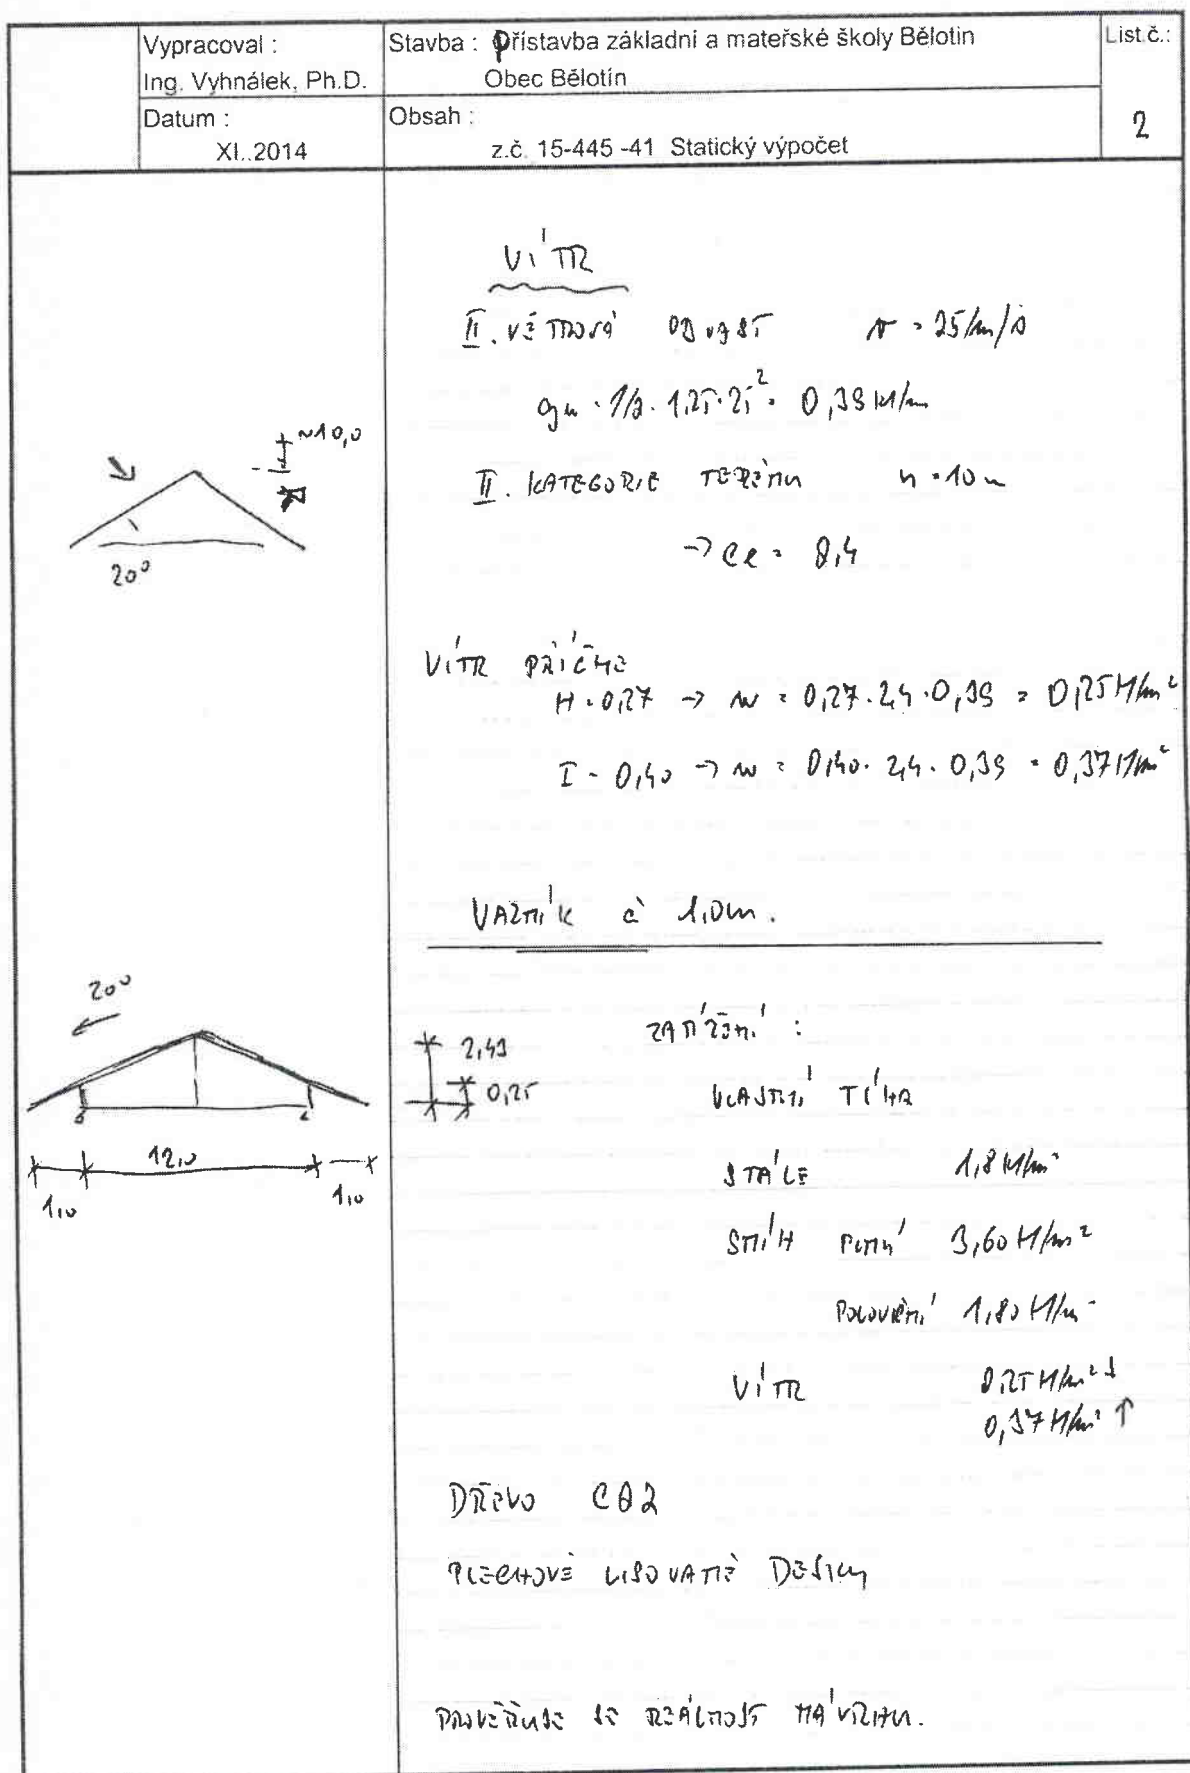 Vypracoval :
Ing. Vyhnálek, Ph.D.
Stavba : Přístavba základní a mateřské školy Bělotin
Obec Bělotín
List.č.:
2
Datum :
XI..2014
Obsah :
z.č. 15-445 -41 Statický výpočet
VÍTR
II. VĚTROVÁ OBLAST v = 25 m/s
1/2 · 1,25 · 25² = 0,39 kN/m
~10,0
20°
II. KATEGORIE TERÉNU h = 10 m
→ Ce = 2,4
VÍTR PŘÍČNĚ
H = 0,27 → w = 0,27 · 2,4 · 0,39 = 0,25 kN/m²
I - 0,40 → w = 0,40 · 2,4 · 0,39 = 0,37 kN/m²
VAZNÍK á 1,0m.
20°
2,43
0,25
12,0
1,0
1,0
ZATÍŽENÍ :
VLASTNÍ TÍHA
STÁLÉ 1,8 kN/m²
SNÍH PLNÝ 3,60 kN/m²
POLOVIČNÍ 1,80 kN/m²
VÍTR 0,25 kN/m² ↓
0,37 kN/m² ↑
DŘEVO C22
PLECHOVÉ LISOVANÉ DESKY
PROVĚŘUJE SE REÁLNOST NÁVRHU.